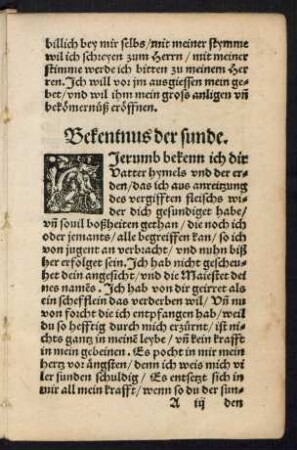 billich bey mir selbs/mit meiner stymme
wil ich schreyen zum Herrn/mit meiner
stimme werde ich bitten zu meinem Her
ren. Ich will vor jm ausgiessen mein ge-
bet/vnd wil ihm mein gross anligen vn̄
bekōmernüß eröffnen.
Bekentnus der sunde.
Hierumb bekenn ich dir
Vatter hymels vnd der er-
den/das ich aus anreitzung
des vergifften fleischs wi-
der dich gesundiget habe/
vn̄ souil boßheiten gethan/die noch ich
oder jemants/alle begreiffen kan/so ich
von jugent an verbracht/vnd nuhn biß
her erfolget sein. Ich hab nicht gescheu-
het dein angesücht/vnd die Maiestet dei
nes namēs. Ich hab von dir geirret als
ein schefflein das verderben wil/Vn̄ nu
von forcht die ich entpfangen hab/weil
du so hefftig durch mich erzürnt/ist ni-
chts gantz in meinē leybe/vn̄ kein krafft
in mein gebeinen. Es pocht in mir mein
hertz vor ängsten/denn ich weis mich vi
ler sunden schuldig/Es entsetzt sich in
mir all mein krafft/wenn so du der sun-
A iij den